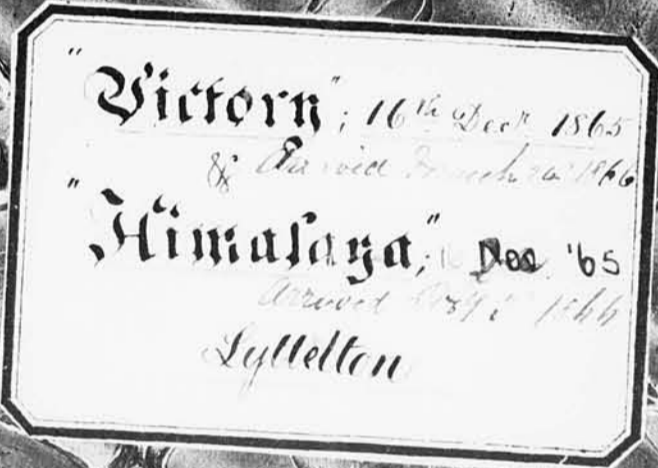 "Victory"; 16th Decr 1865
& Arrived March 1866
"Himalaya," 16 Dec '65
Arrived 1866
Lyttelton